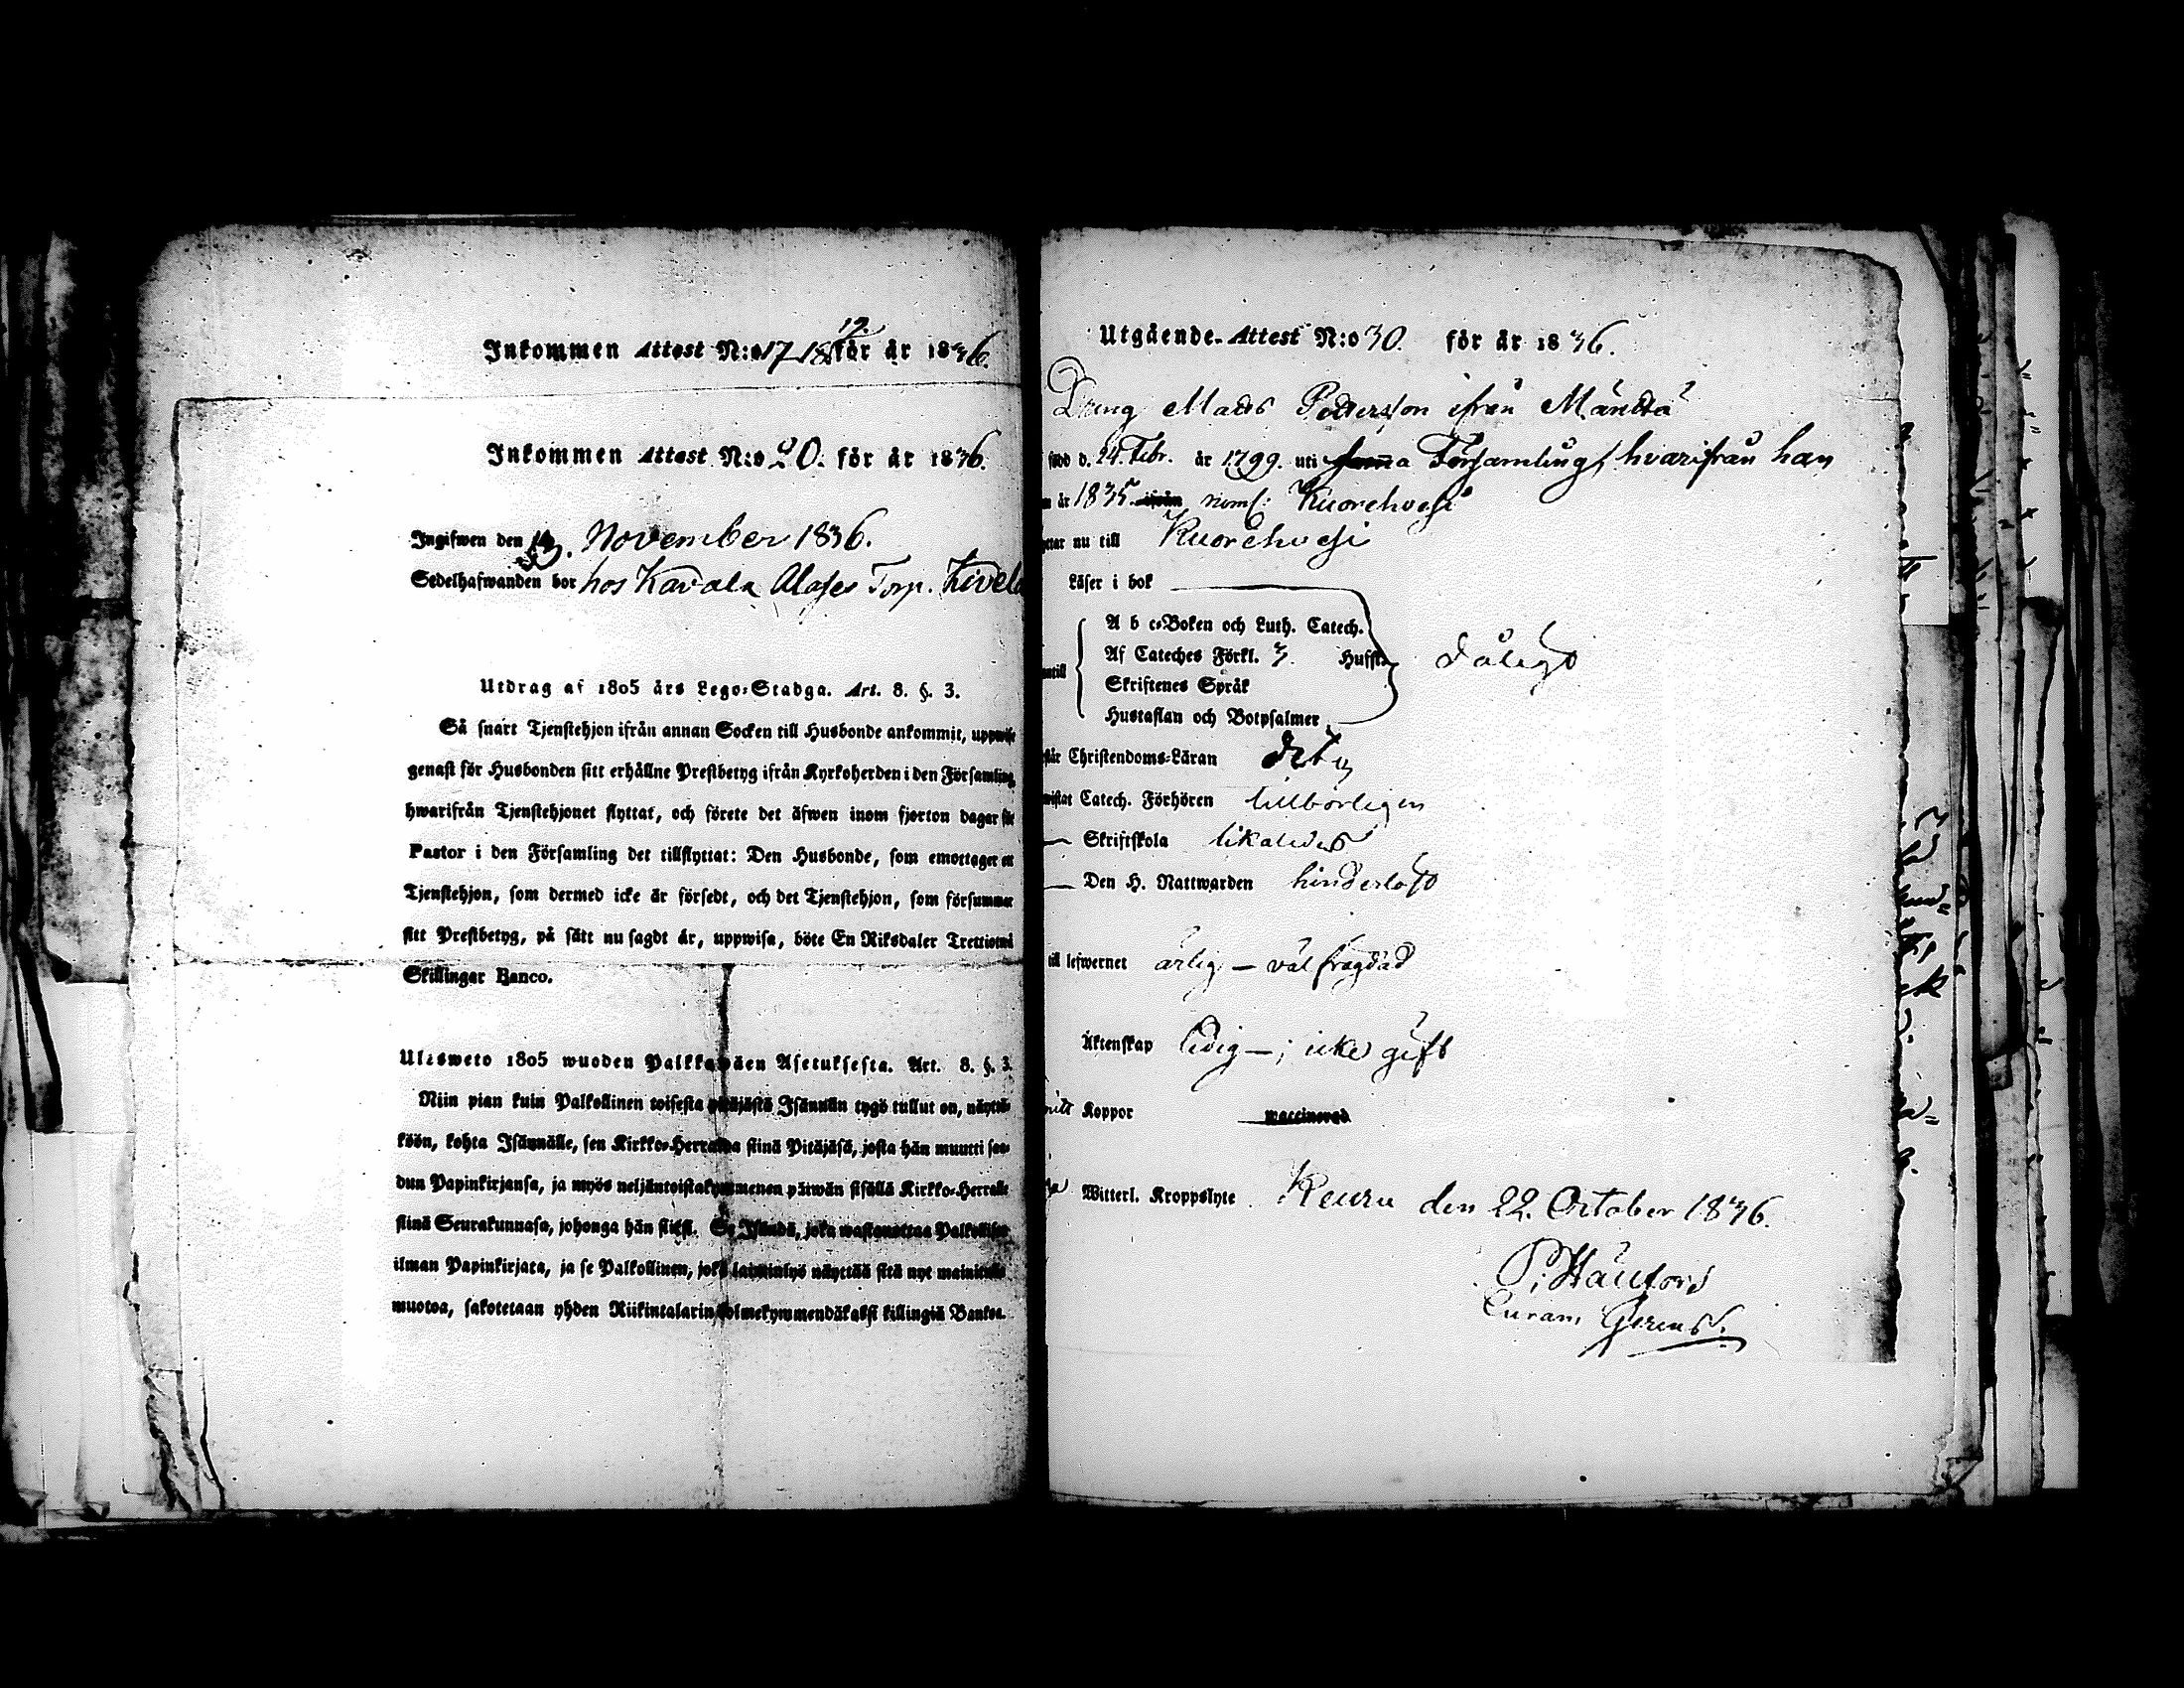 Inkommen Attest N:o 17-18 19. för år 1836.
Inkommen Attest N:o 20. för år 1836.
Ingifwen den November 1836.
Sedelhafwanden bor hos Kavala Torp.
Utdrag af 1805 års Lego-Stadga. Art. 8. §. 3.
Så snart Tjenstehjon ifrån annan Socken till Husbonde ankommit, uppwise
genast för Husbonden sitt erhållne Prestbetyg ifrån Kyrkoherden i den Församling
hwarifrån Tjenstehjonet flyttat, och förete det äfwen inom fjorton dagar för
Pastor i den Församling det tillflyttat: Den Husbonde, som emottager ett
Tjenstehjon, som dermed icke är försedt, och det Tjenstehjon, som försummar
sitt Prestbetyg, på sätt nu sagdt är, uppwisa, böte En Riksdaler Trettiotwå
Skillingar Banco.
Ulosweto 1805 wuoden Palkkawäen Asetuksesta. Art. 8. §. 3.
Niin pian kuin Palkollinen toisesta pitäjästä Isännän tygö tullut on, näyttä-
köön, kohta Isännälle, sen Kirkko-Herralda siinä Pitäjäsä, josta hän muutti saa-
dun Papinkirjansa, ja myös neljäntoistakymmenen päiwän sisällä Kirkko-Herralle
siinä Seurakunnasa, johonga hän siirsi. Se Isändä, joka wastaanottaa Palkollisen
ilman Papinkirjata, ja se Palkollinen, joka laiminlyö näyttää sitä nyt mainitulla
muotoa, sakotetaan yhden Riikintalarin kolmekymmendäkaksi killingiä Bankoa.
Utgående Attest N:o 30. för år 1836.
Dräng Mats Pettersson ifrån Mänttä
född d. 24. Febr. år 1799. uti samma Församling, hvarifrån han
år 1835. ifrån Kuorehvesi
nu till Kuorehvesi
Läser i bok
A b c-Boken och Luth. Catech.
Af Cateches Förkl. 3 Hufst.
Skriftenes Språk
Hustaflan och Botpsalmer
dåligt
Christendoms-Läran dito
Catech. Förhören tillbörligen
— Skriftskola likaledes
— Den H. Nattwarden hinderlöst
till lefwernet ärlig — välfrägdad
Äktenskap ledig —; icke gift
Koppor waccinerad
Witterl. Kroppslyte Keuru den 22. October 1836.
Curam Gerens.